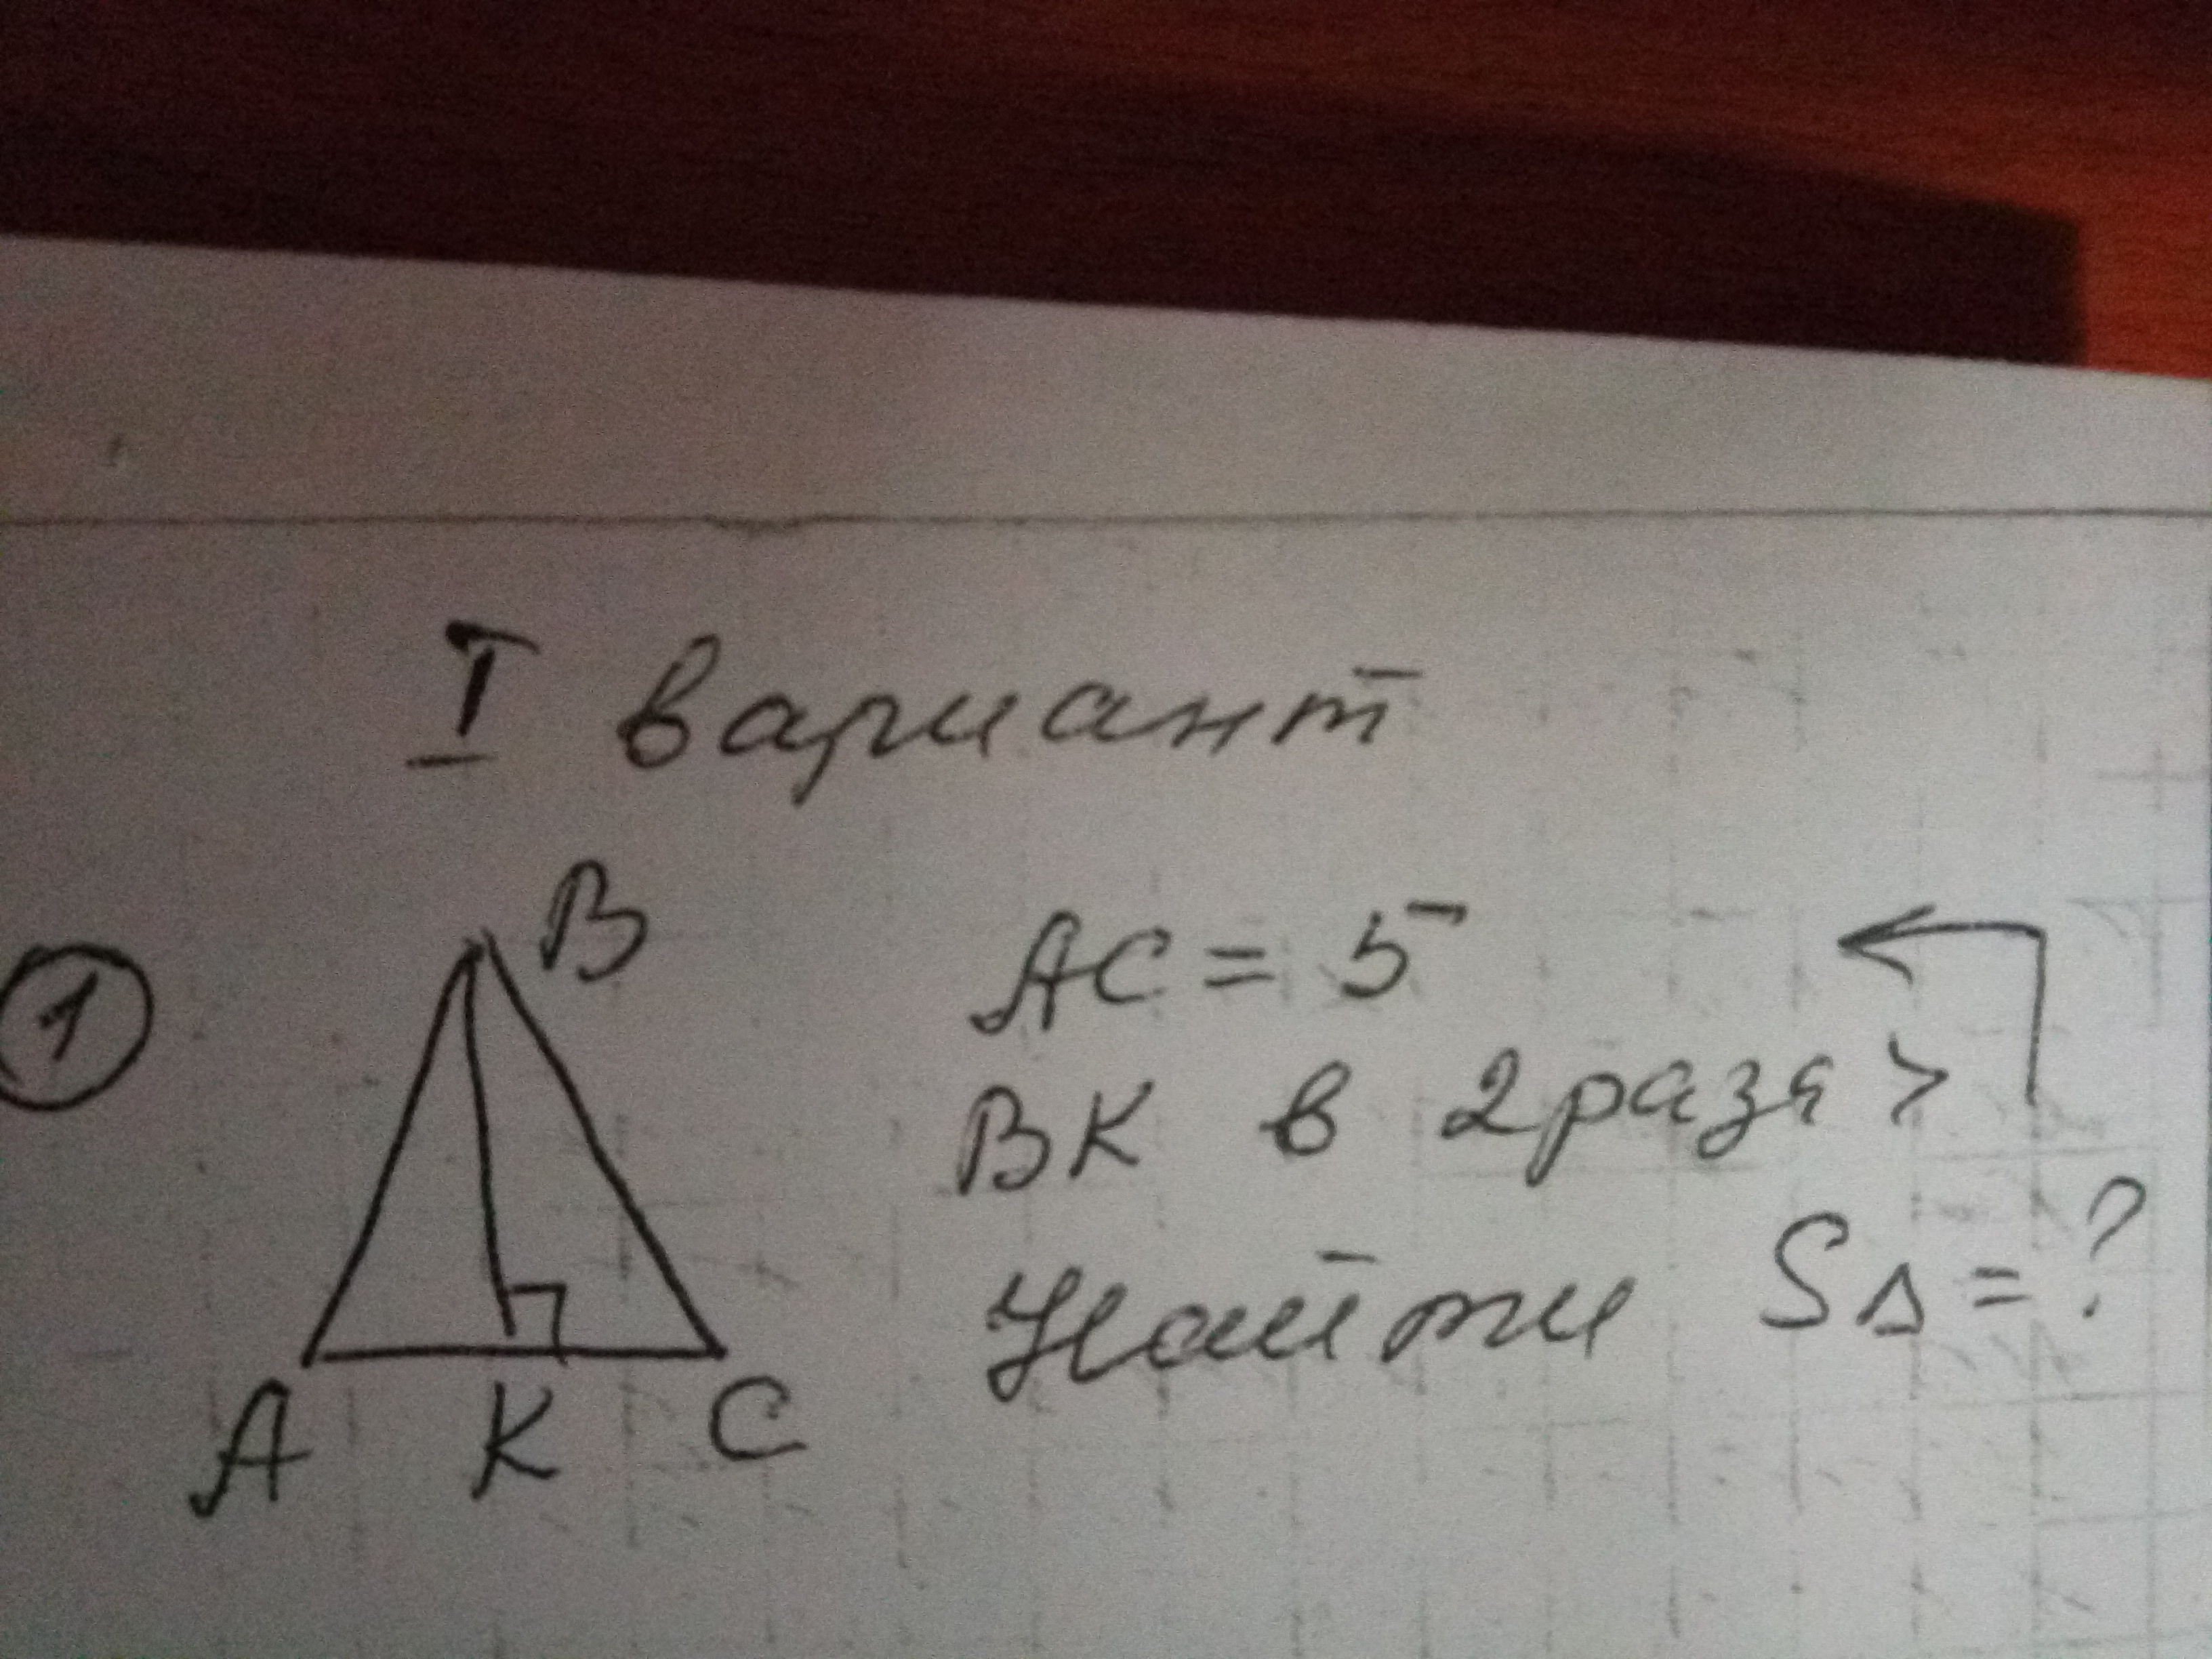 I вариант
1
B
AC = 5
BK в 2 раза >
Найти S△ = ?
A K C